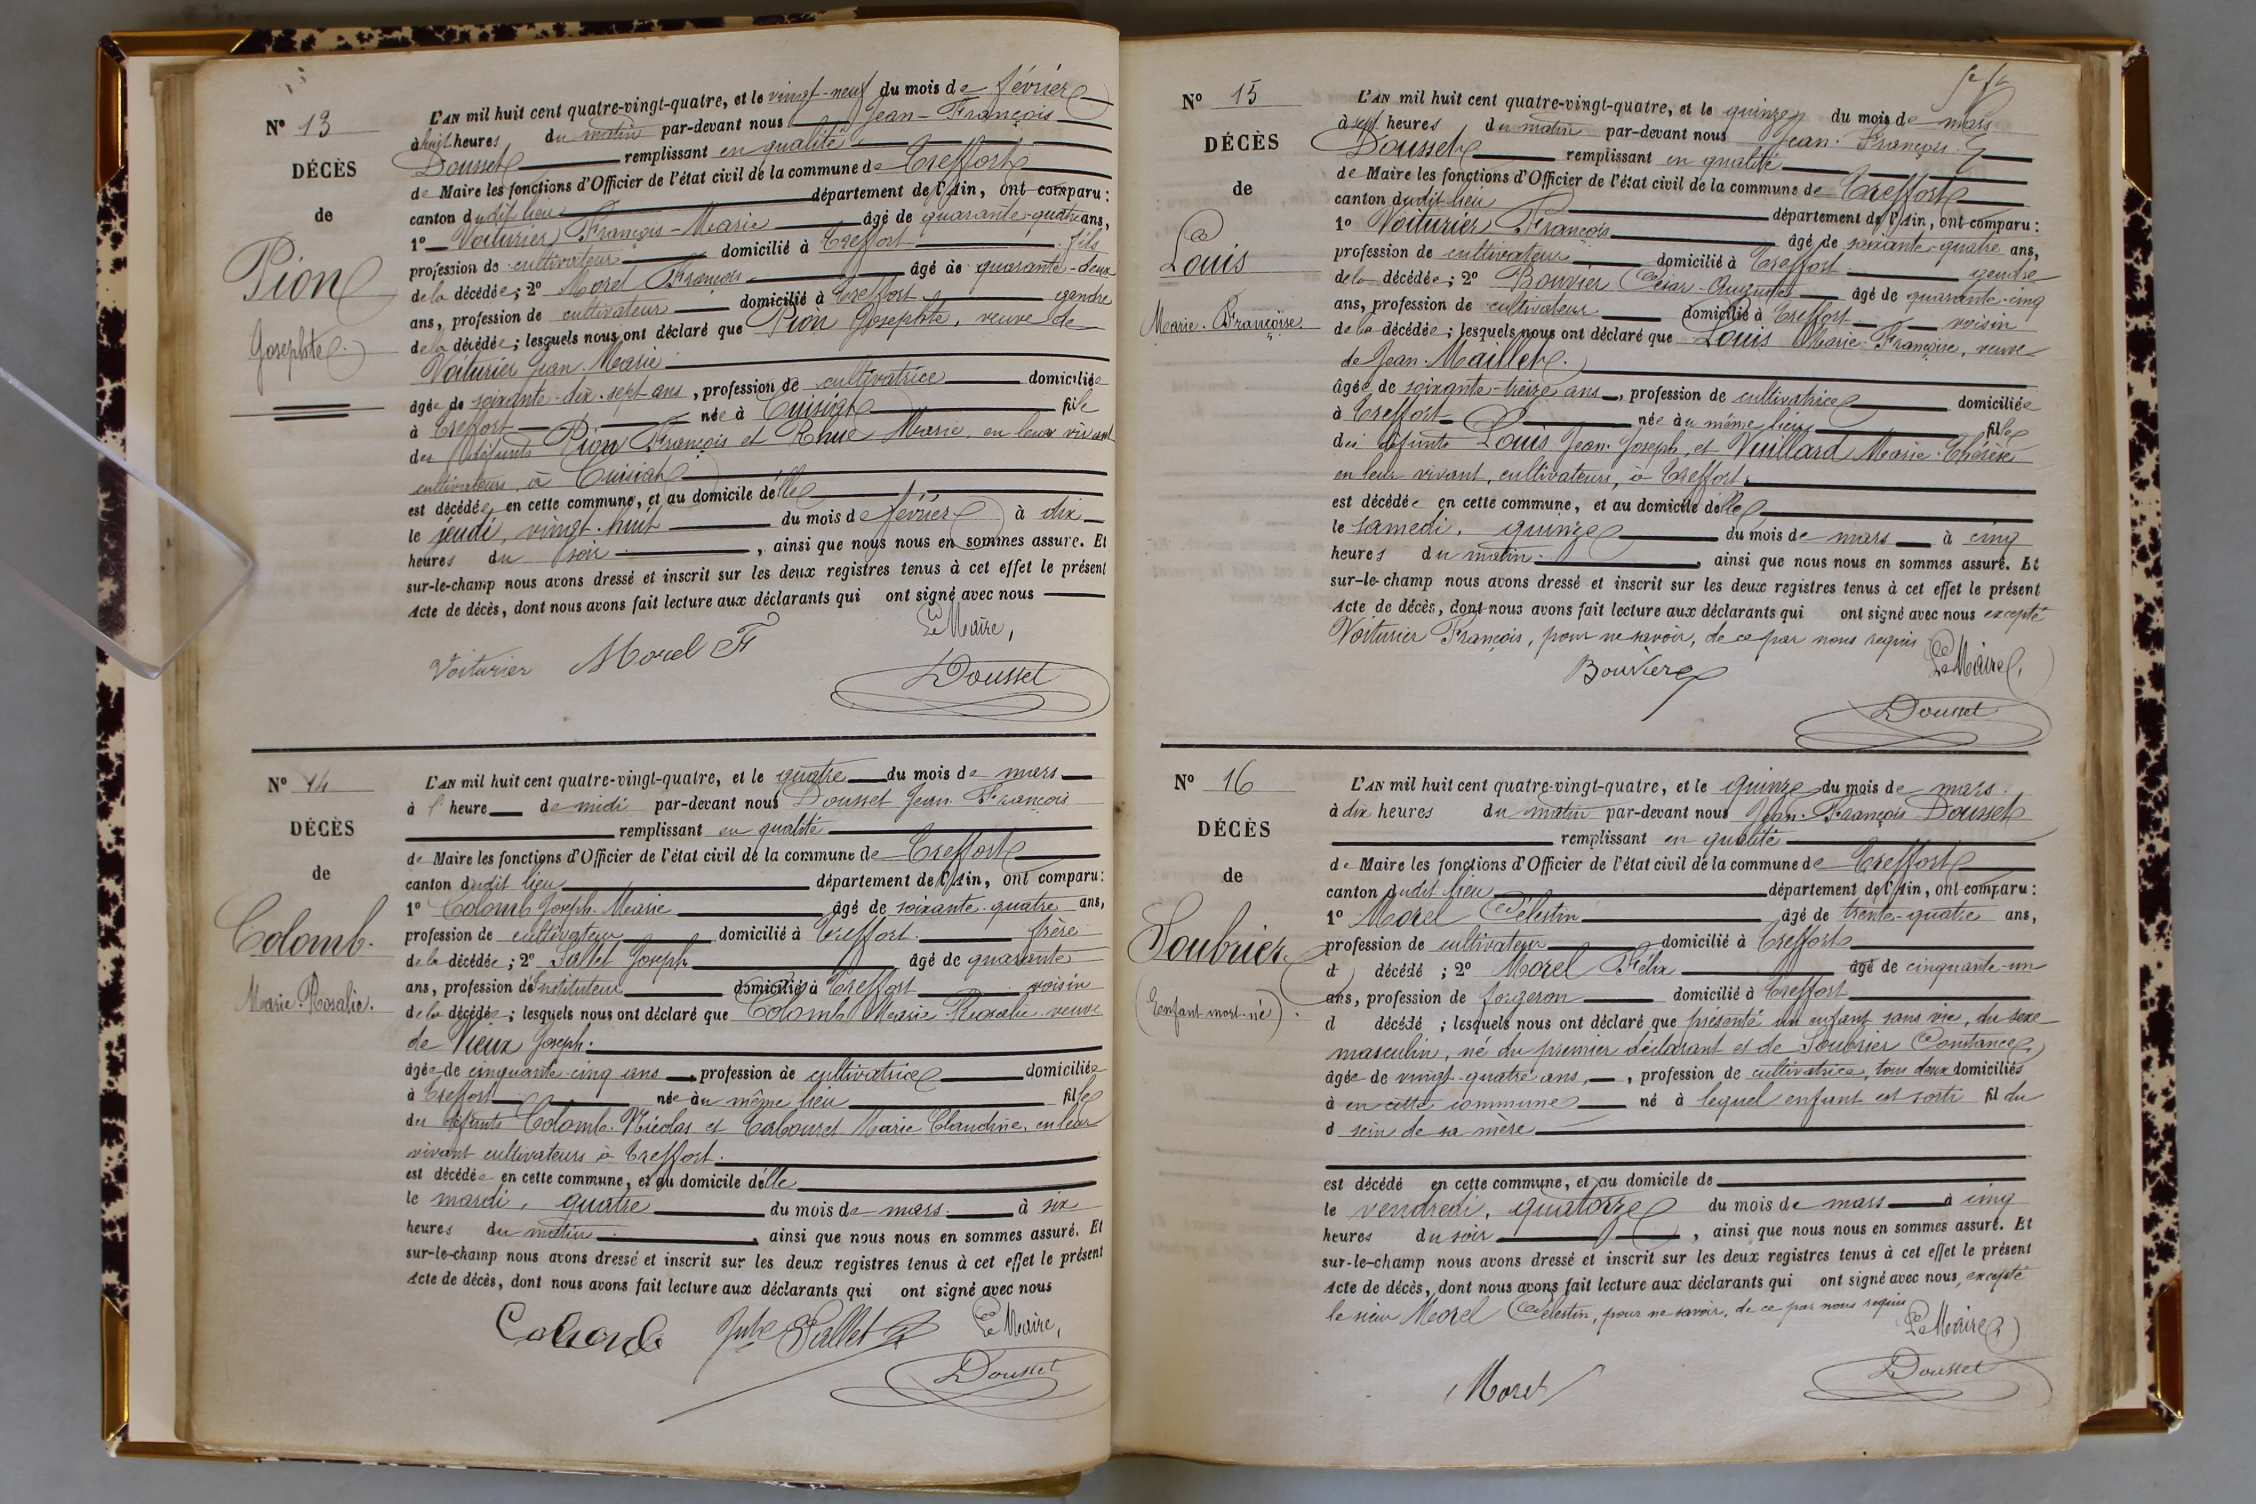 Nº 13
DÉCÈS
de
Pion
Josephte.
L'AN mil huit cent quatre-vingt-quatre, et le vingt-neuf du mois de février
à huit heures du matin par-devant nous Jean-François
Dousset remplissant en qualité
de Maire les fonctions d'Officier de l'état civil de la commune de Treffort
canton dudit lieu département de l'Ain, ont comparu :
1º Voiturier François-Marie âgé de quarante-quatre ans,
profession de cultivateur domicilié à Treffort fils
de la décédée ; 2º Morel François âgé de quarante-deux
ans, profession de cultivateur domicilié à Treffort gendre
de la décédée ; lesquels nous ont déclaré que Pion Josephte, veuve de
Voiturier Jean-Marie
âgée de soixante-dix-sept ans, profession de cultivatrice domiciliée
à Treffort née à Cuisiat fille
des défunts Pion François et Rhue Marie, en leur vivant
cultivateurs, à Cuisiat
est décédée en cette commune, et au domicile d'elle
le jeudi, vingt-huit du mois de février à dix
heures du soir, ainsi que nous nous en sommes assuré. Et
sur-le-champ nous avons dressé et inscrit sur les deux registres tenus à cet effet le présent
Acte de décès, dont nous avons fait lecture aux déclarants qui ont signé avec nous
Le Maire,
Voiturier Morel F
Dousset
Nº 14
DÉCÈS
de
Colomb.
Marie-Rosalie.
L'AN mil huit cent quatre-vingt-quatre, et le quatre du mois de mars
à l'heure de midi par-devant nous Dousset Jean-François
remplissant en qualité
de Maire les fonctions d'Officier de l'état civil de la commune de Treffort
canton dudit lieu département de l'Ain, ont comparu :
1º Colomb Joseph-Marie âgé de soixante-quatre ans,
profession de cultivateur domicilié à Treffort frère
de la décédée ; 2º Sallet Joseph âgé de quarante
ans, profession de Instituteur domicilié à Treffort voisin
de la décédée ; lesquels nous ont déclaré que Colomb Marie Rosalie veuve
de Vieux Joseph.
âgée de cinquante-cinq ans, profession de cultivatrice domiciliée
à Treffort née au même lieu fille
des défunts Colomb Nicolas et Cabouret Marie Claudine, en leur
vivant cultivateurs à Treffort.
est décédée en cette commune, et au domicile d'elle
le mardi, quatre du mois de mars à six
heures du matin, ainsi que nous nous en sommes assuré. Et
sur-le-champ nous avons dressé et inscrit sur les deux registres tenus à cet effet le présent
Acte de décès, dont nous avons fait lecture aux déclarants qui ont signé avec nous
Le Maire,
Colomb Sallet
Dousset
Nº 15
DÉCÈS
de
Louis
Marie-Françoise
L'AN mil huit cent quatre-vingt-quatre, et le quinze du mois de mars
à sept heures du matin par-devant nous Jean-François
Dousset remplissant en qualité
de Maire les fonctions d'Officier de l'état civil de la commune de Treffort
canton dudit lieu département de l'Ain, ont comparu :
1º Voiturier François âgé de soixante-quatre ans,
profession de cultivateur domicilié à Treffort gendre
de la décédée ; 2º Bouvier César-Auguste âgé de quarante-cinq
ans, profession de cultivateur domicilié à Treffort voisin
de la décédée ; lesquels nous ont déclaré que Louis Marie-Françoise, veuve
de Jean Maillet.
âgée de soixante-treize ans, profession de cultivatrice domiciliée
à Treffort née au même lieu fille
des défunts Louis Jean-Joseph, et Vuillard Marie-Thérèse
en leur vivant, cultivateurs, à Treffort.
est décédée en cette commune, et au domicile d'elle
le samedi, quinze du mois de mars à cinq
heures du matin, ainsi que nous nous en sommes assuré. Et
sur-le-champ nous avons dressé et inscrit sur les deux registres tenus à cet effet le présent
Acte de décès, dont nous avons fait lecture aux déclarants qui ont signé avec nous excepté
Voiturier François, pour ne savoir, de ce par nous requis
Le Maire,
Bouvier
Dousset
Nº 16
DÉCÈS
de
Soubrier.
(Enfant mort-né).
L'AN mil huit cent quatre-vingt-quatre, et le quinze du mois de mars.
à dix heures du matin par-devant nous Jean-François Dousset
remplissant en qualité
de Maire les fonctions d'Officier de l'état civil de la commune de Treffort
canton dudit lieu département de l'Ain, ont comparu :
1º Morel Célestin âgé de trente-quatre ans,
profession de cultivateur domicilié à Treffort
d décédé ; 2º Morel Félix âgé de cinquante-un
ans, profession de forgeron domicilié à Treffort
d décédé ; lesquels nous ont déclaré que présenté un enfant sans vie, du sexe
masculin, né du premier déclarant et de Soubrier Constance
âgée de vingt-quatre ans, profession de cultivatrice, tous deux domiciliés
à en cette commune né à lequel enfant est sorti fil du
d sein de sa mère
est décédé en cette commune, et au domicile de
le vendredi, quatorze du mois de mars à cinq
heures du soir, ainsi que nous nous en sommes assuré. Et
sur-le-champ nous avons dressé et inscrit sur les deux registres tenus à cet effet le présent
Acte de décès, dont nous avons fait lecture aux déclarants qui ont signé avec nous, excepté
le sieur Morel Célestin, pour ne savoir, de ce par nous requis
Le Maire
Morel
Dousset